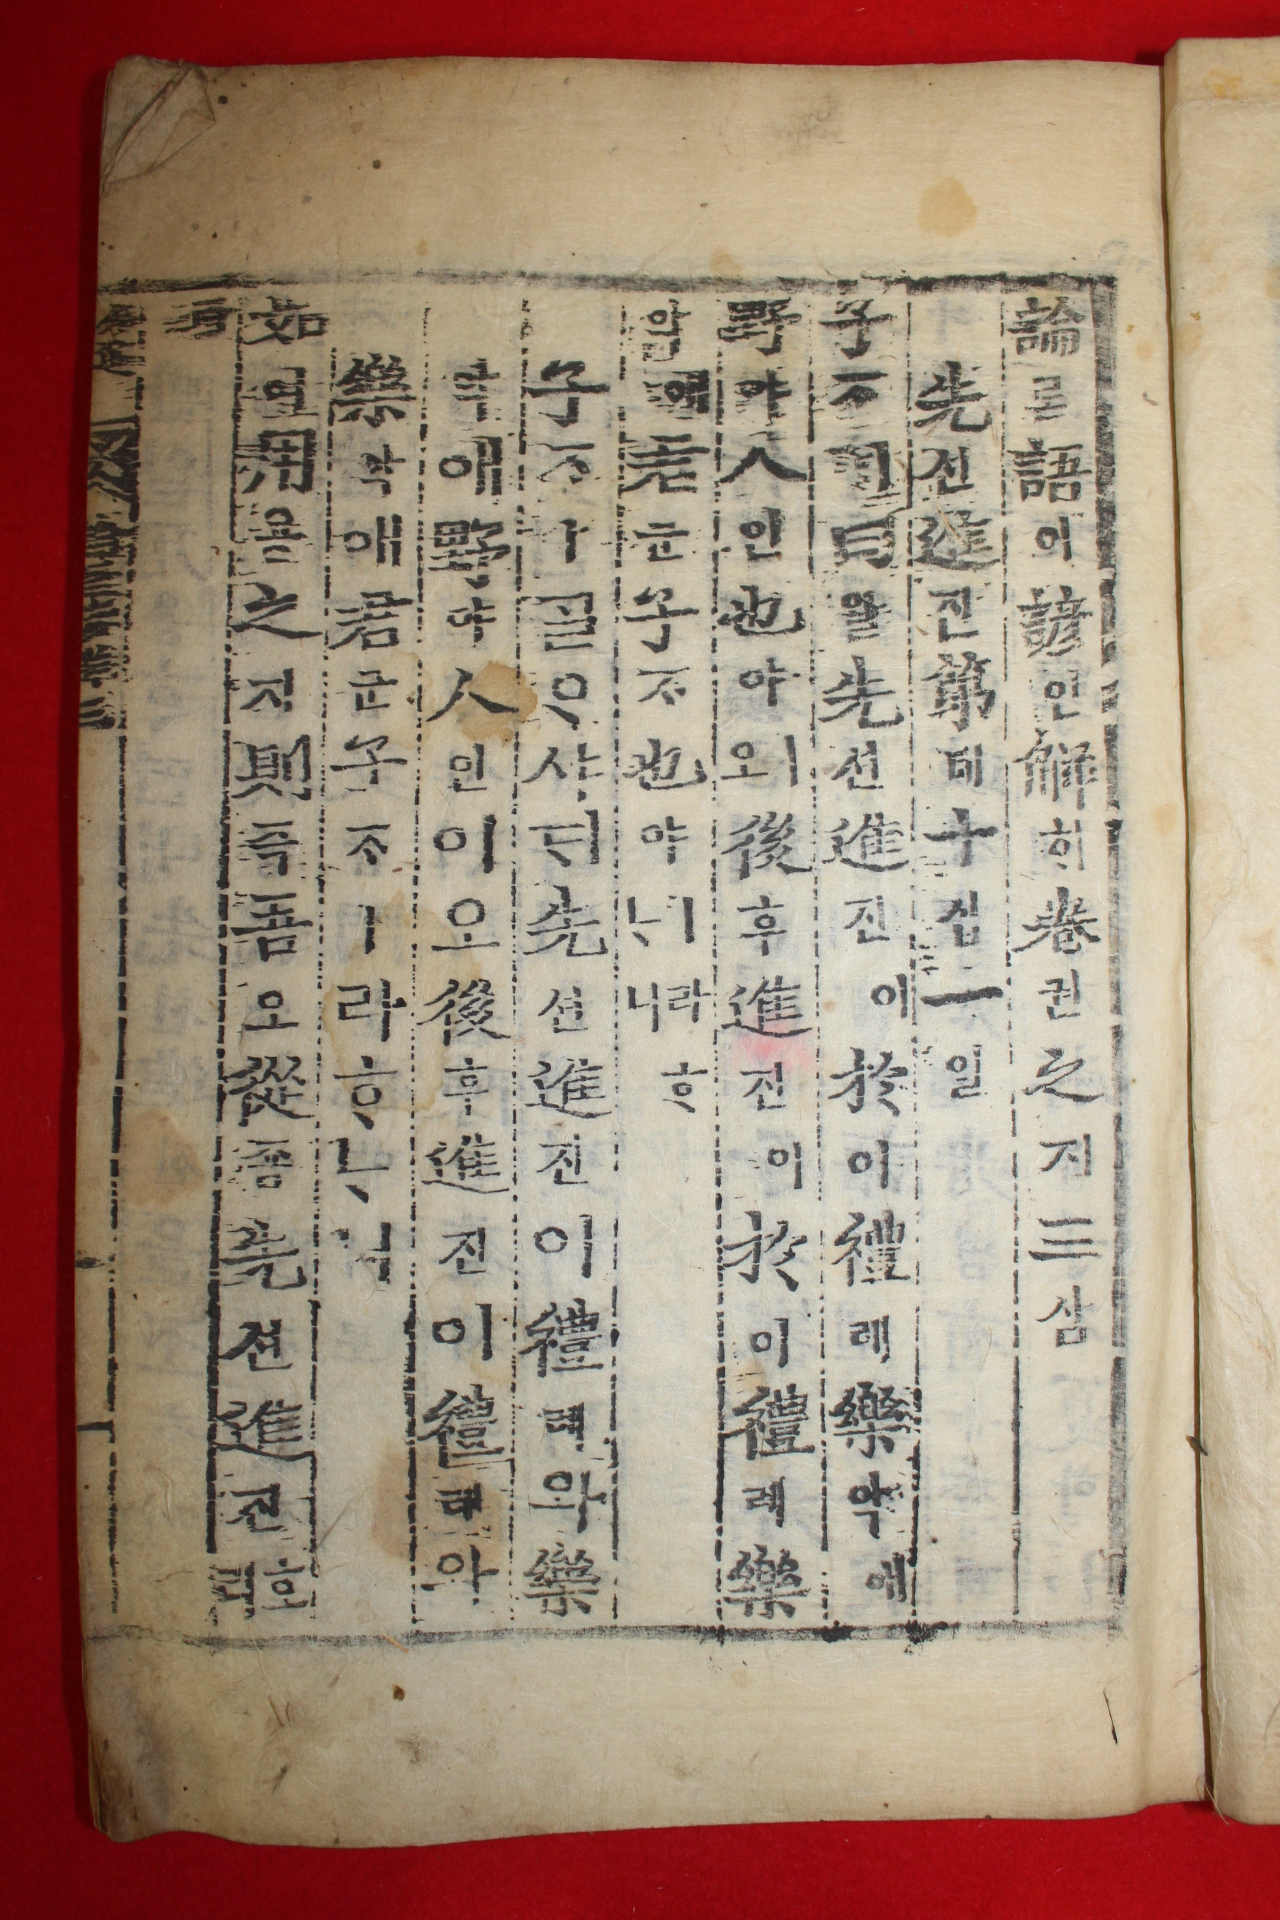 論론語어諺언解ᄒᆡ卷권之지三삼
先션進진第뎨十십一일
子ᄌᆞㅣ曰왈先션進진이於어禮례樂악에
野야人인也야ㅣ오後후進진이於어禮례樂
악애君군子ᄌᆞ也야
子ᄌᆞㅣᄀᆞᆯᄋᆞ샤ᄃᆡ先션進진이禮례와樂
악애野야人인이오後후進진이禮례와
樂악애君군子ᄌᆞㅣ라ᄒᆞᄂᆞ니
如여用용之지則즉吾오從죵先션進진호